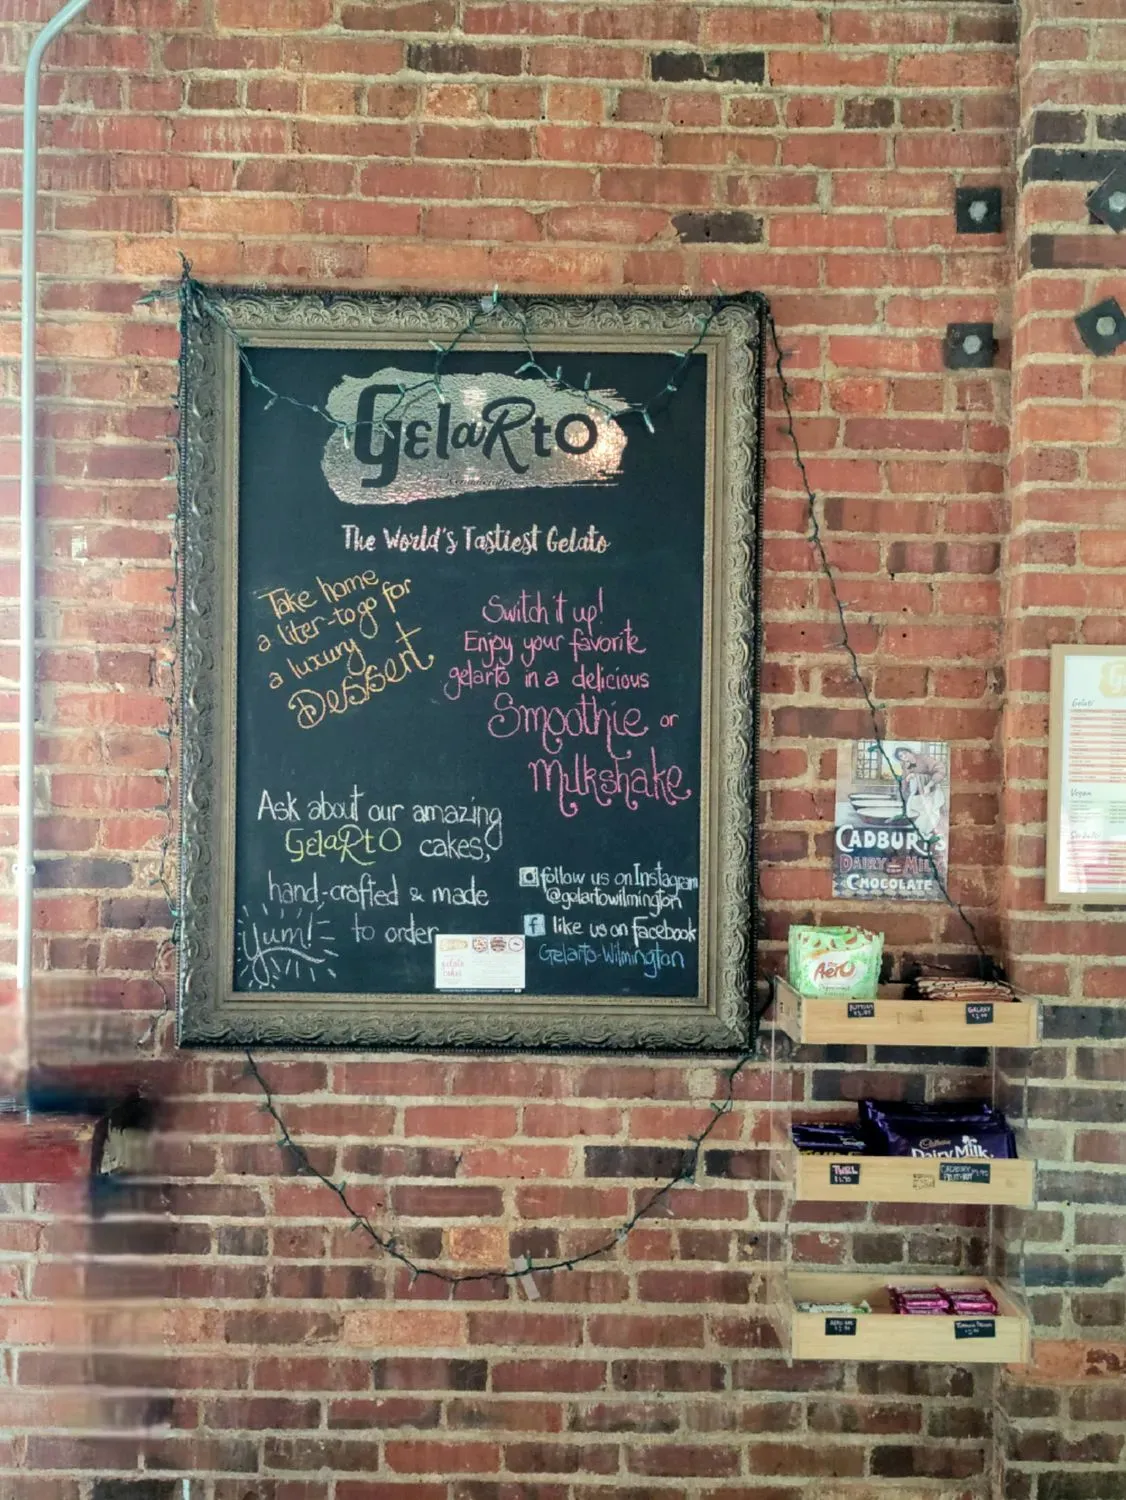 GelaRtO
The World's Tastiest Gelato
Take home
a liter-to go for
a luxury
Dessert
Switch it up!
Enjoy your favorite
gelarto in a delicious
Smoothie or
Milkshake
Ask about our amazing
GelaRtO cakes,
hand-crafted & made
to order
Yum!
follow us on Instagram
@gelartowilmington
f like us on Facebook
Gelarto-Wilmington
gelato
cakes
CADBURY'S
DAIRY MILK
CHOCOLATE
Gelato
Vegan
Sorbeto
Aero
Peppermint
GALAXY
Cadbury
Dairy Milk
TWIRL
CADBURY